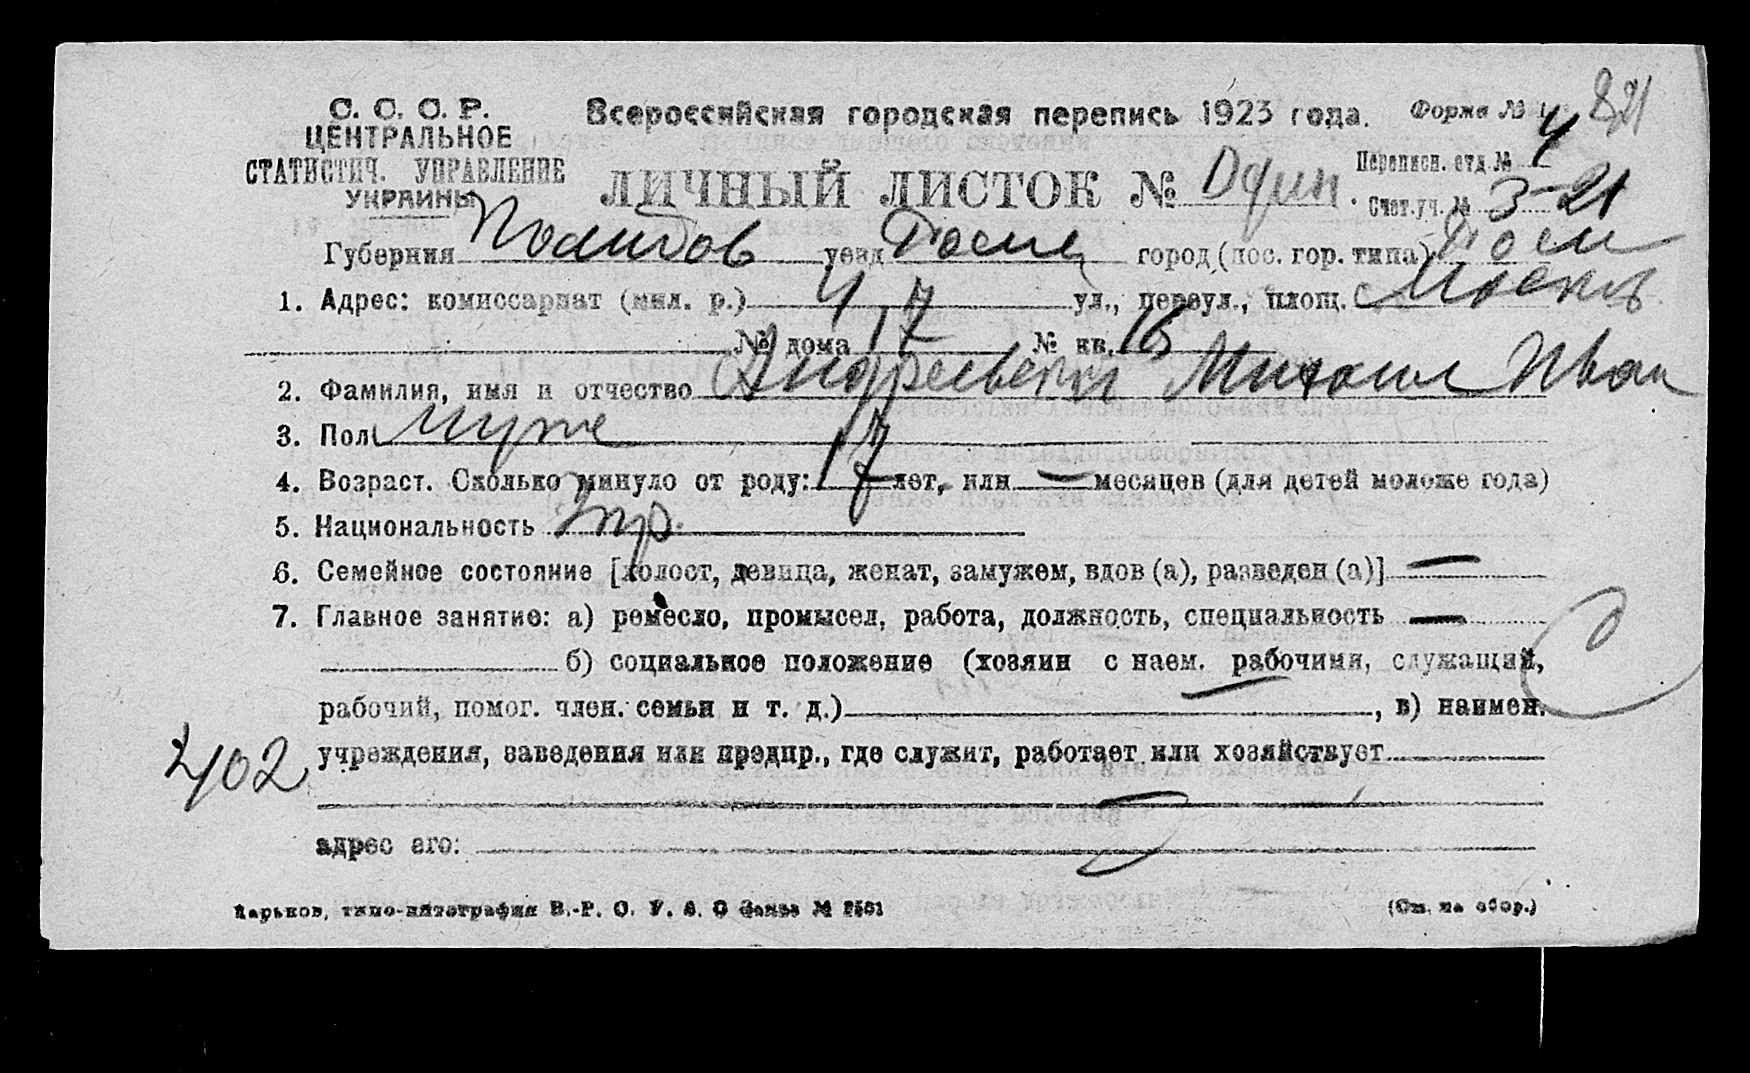 С. С. С. Р.
ЦЕНТРАЛЬНОЕ
СТАТИСТИЧ. УПРАВЛЕНИЕ
УКРАИНЫ
Всероссийская городская перепись 1923 года. Форма № 1
821
ЛИЧНЫЙ ЛИСТОК № Один.
Переписн. отд. № 4
Счет. уч. № 3-21
Губерния уезд город (пос. гор. типа)
1. Адрес: комиссариат (мил. р.) 4 ул., переул., площ.
№ дома 17 № кв. 16
2. Фамилия, имя и отчество Андреевский Михаил Иван
3. Пол Муж
4. Возраст. Сколько минуло от роду: 17 лет, или — месяцев (для детей моложе года)
5. Национальность Укр.
6. Семейное состояние [холост, девица, женат, замужем, вдов (а), разведен (а)] —
7. Главное занятие: а) ремесло, промысел, работа, должность, специальность —
б) социальное положение (хозяин с наем. рабочими, служащий,
рабочий, помог. член. семьи и т. д.) , в) наимен.
учреждения, заведения или предпр., где служит, работает или хозяйствует
402
адрес его:
Харьков, типо-литография В.-Р. О. У. С. О Заказ №
(См. на обор.)